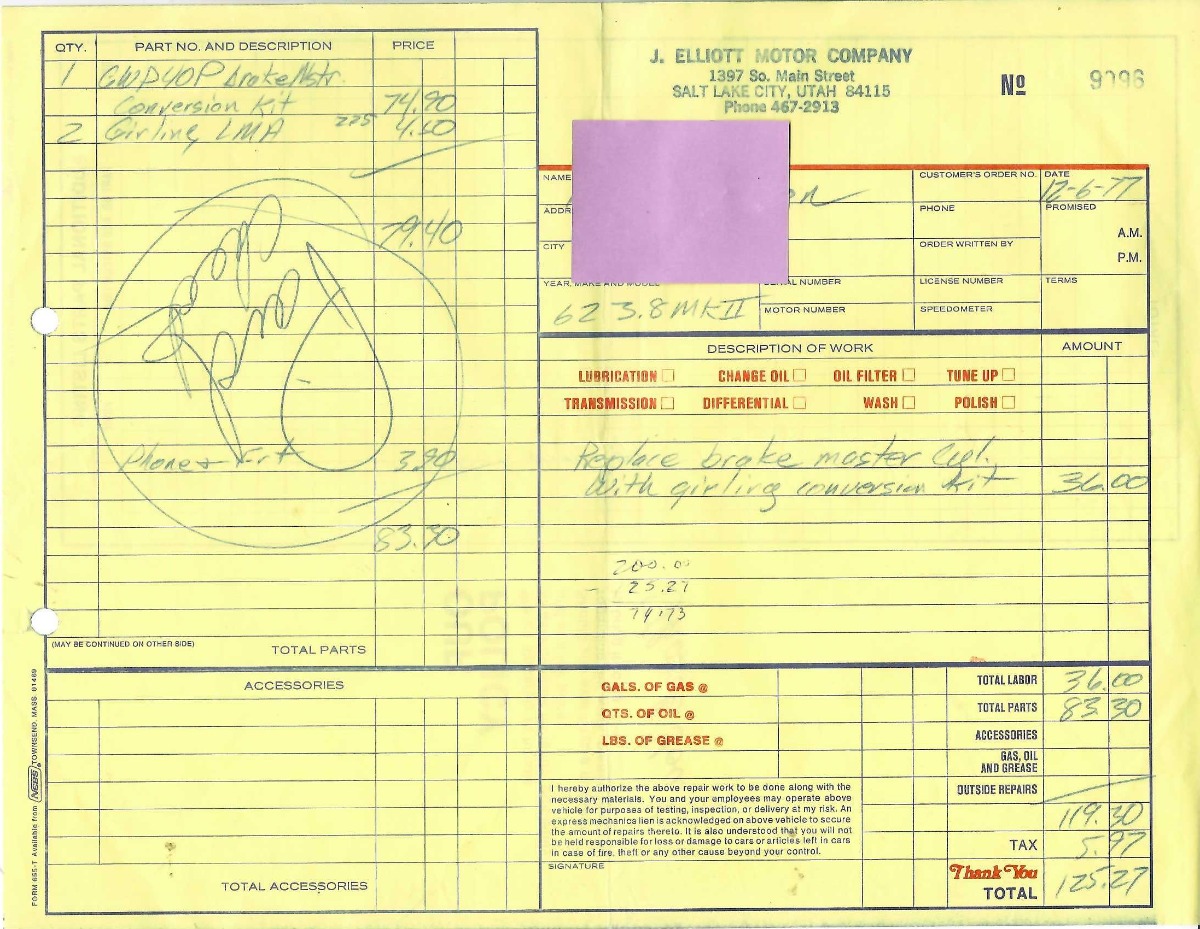 QTY. PART NO. AND DESCRIPTION PRICE
1 GWP40P brake Mstr.
Conversion Kit 74.90
2 Girling LMA 225 4.50
79.40
Paid
Phone + Frt 3.90
83.30
(MAY BE CONTINUED ON OTHER SIDE) TOTAL PARTS
ACCESSORIES
TOTAL ACCESSORIES
FORM 655-T Available from NEBS, TOWNSEND, MASS. 01469
J. ELLIOTT MOTOR COMPANY
1397 So. Main Street
SALT LAKE CITY, UTAH 84115
Phone 467-2913
No 9096
NAME CUSTOMER'S ORDER NO. DATE 12-6-77
ADDR PHONE PROMISED
A.M.
CITY ORDER WRITTEN BY
P.M.
YEAR, MAKE AND MODEL SERIAL NUMBER LICENSE NUMBER TERMS
62 3.8 MK II MOTOR NUMBER SPEEDOMETER
DESCRIPTION OF WORK AMOUNT
LUBRICATION CHANGE OIL OIL FILTER TUNE UP
TRANSMISSION DIFFERENTIAL WASH POLISH
Replace brake master Cyl.
With girling conversion kit 36.00
200.00
25.27
74.73
GALS. OF GAS @ TOTAL LABOR 36.00
QTS. OF OIL @ TOTAL PARTS 83.30
LBS. OF GREASE @ ACCESSORIES
GAS, OIL
AND GREASE
OUTSIDE REPAIRS
119.30
I hereby authorize the above repair work to be done along with the
necessary materials. You and your employees may operate above
vehicle for purposes of testing, inspection, or delivery at my risk. An
express mechanics lien is acknowledged on above vehicle to secure
the amount of repairs thereto. It is also understood that you will not
be held responsible for loss or damage to cars or articles left in cars
in case of fire, theft or any other cause beyond your control.
TAX 5.97
SIGNATURE
Thank You
TOTAL 125.27